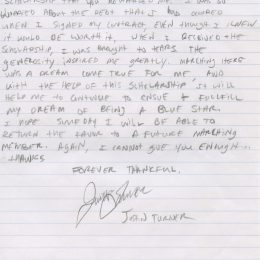 SCHOLARSHIP THAT YOU REWARDED ME. I WAS SO
WORRIED ABOUT THE DEBT THAT I HAD INCURRED
WHEN I SIGNED MY CONTRACT, EVEN THOUGH I KNEW
IT WOULD BE WORTH IT, WHEN I RECEIVED THE
SCHOLARSHIP, I WAS BROUGHT TO TEARS. THE
GENEROSITY INSPIRED ME GREATLY. MARCHING HERE
WAS A DREAM COME TRUE FOR ME, AND
WITH THE HELP OF THIS SCHOLARSHIP IT WILL
HELP ME TO CONTINUE TO ENSUE & FULLFILL
MY DREAM OF BEING A BLUE STAR.
I HOPE SOMEDAY I WILL BE ABLE TO
RETURN THE FAVOR TO A FUTURE MARCHING
MEMBER. AGAIN, I CANNOT GIVE YOU ENOUGH...
THANKS
FOREVER THANKFUL,
TURNER